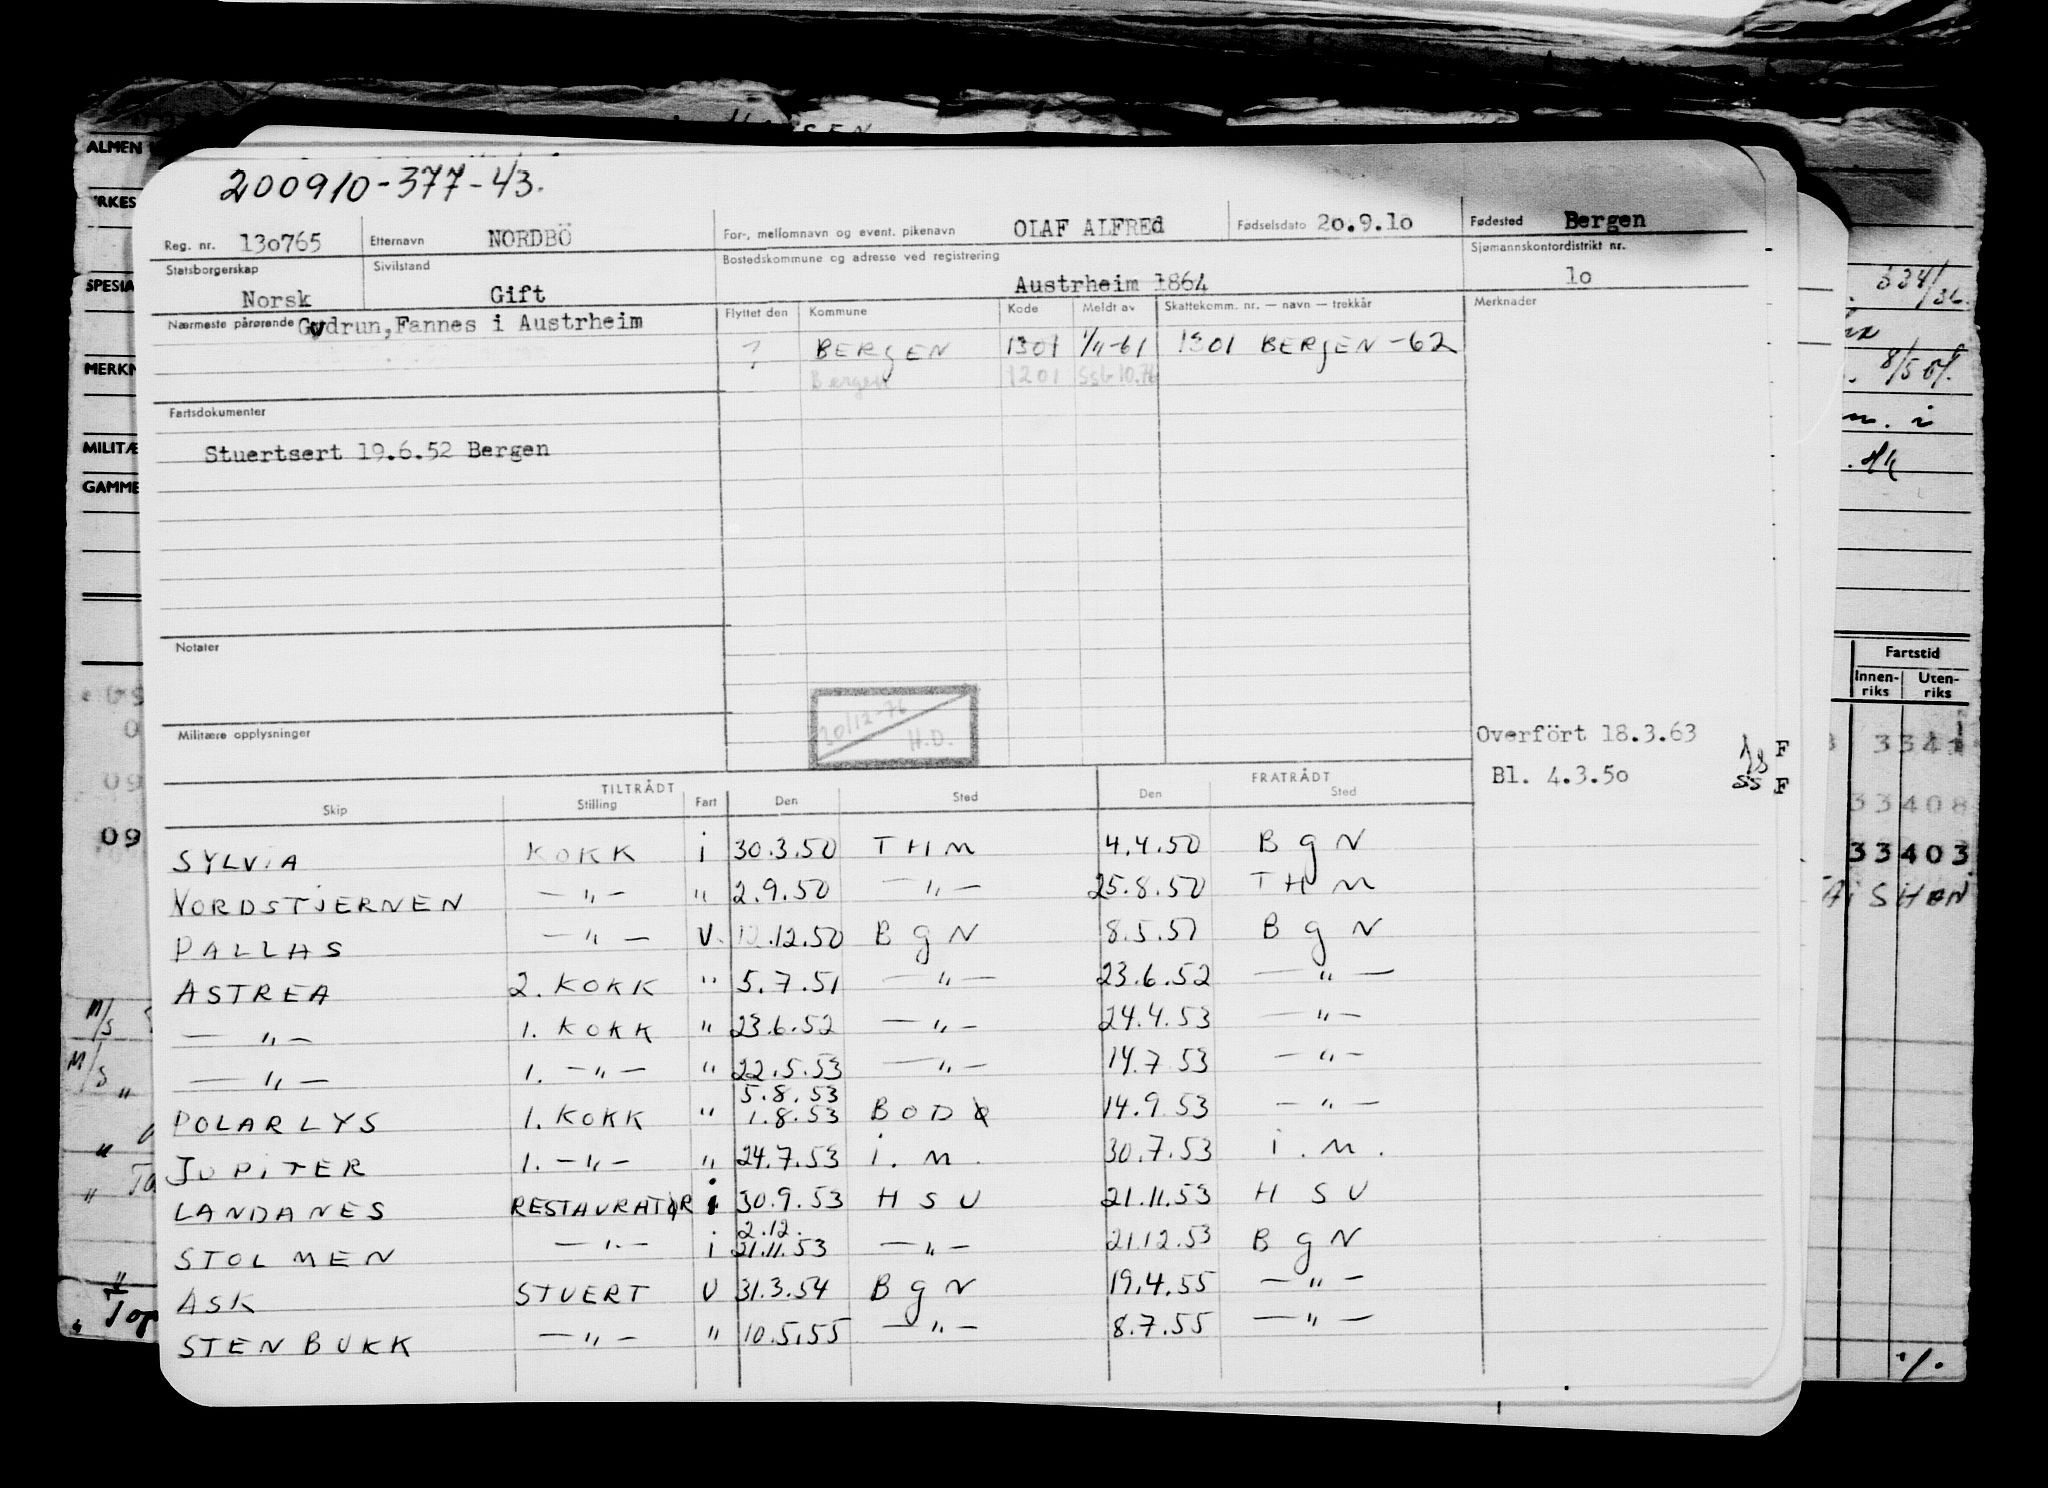 200910-377-43.
Reg. nr. 130765 Etternavn NORDBÖ For-, mellomnavn og event. pikenavn OLAF ALFREd Fødselsdato 20.9.10 Fødested Bergen
Statsborgerskap Norsk Sivilstand Gift Bostedskommune og adresse ved registrering Austrheim 1864 Sjømannskontordistrikt nr. 10
Nærmeste pårørende Gudrun, Fannes i Austrheim
Flyttet den Kommune Kode Meldt av Skattekomm. nr. — navn — trekkår Merknader
? BERGEN 1301 1/11-61 1301 BERGEN -62
Bergen 1201 Ssb 10.76
Fartsdokumenter
Stuertsert 19.6.52 Bergen
Notater
20/12-76
H.D.
Militære opplysninger
Overfört 18.3.63 F
Bl. 4.3.50 SS F
TILTRÅDT FRATRÅDT
Skip Stilling Fart Den Sted Den Sted
SYLVIA KOKK i 30.3.50 THM 4.4.50 BGN
NORDSTJERNEN —"— " 2.9.50 —"— 25.8.50 THM
PALLAS —"— U. 12.12.50 BGN 8.5.51 BGN
ASTREA 2. KOKK " 5.7.51 —"— 23.6.52 —"—
—"— 1. KOKK " 23.6.52 —"— 24.4.53 —"—
—"— 1. —"— " 22.5.53 —"— 14.7.53 —"—
5.8.53
POLARLYS 1. KOKK " 1.8.53 BODØ 14.9.53 —"—
JUPITER 1. —"— " 24.7.53 i.M. 30.7.53 i.M.
LANDANES RESTAURATØR i 30.9.53 HSU 21.11.53 HSU
2.12.
STOLMEN —"— i 21.11.53 —"— 21.12.53 BGN
ASK STUERT U 31.3.54 BGN 19.4.55 —"—
STENBUKK —"— " 10.5.55 —"— 8.7.55 —"—
ALMEN
RKES
SPESIA
MERKN
MILITÆ
GAMME
09
Fartstid
Innen-riks Uten-riks
33408
33403